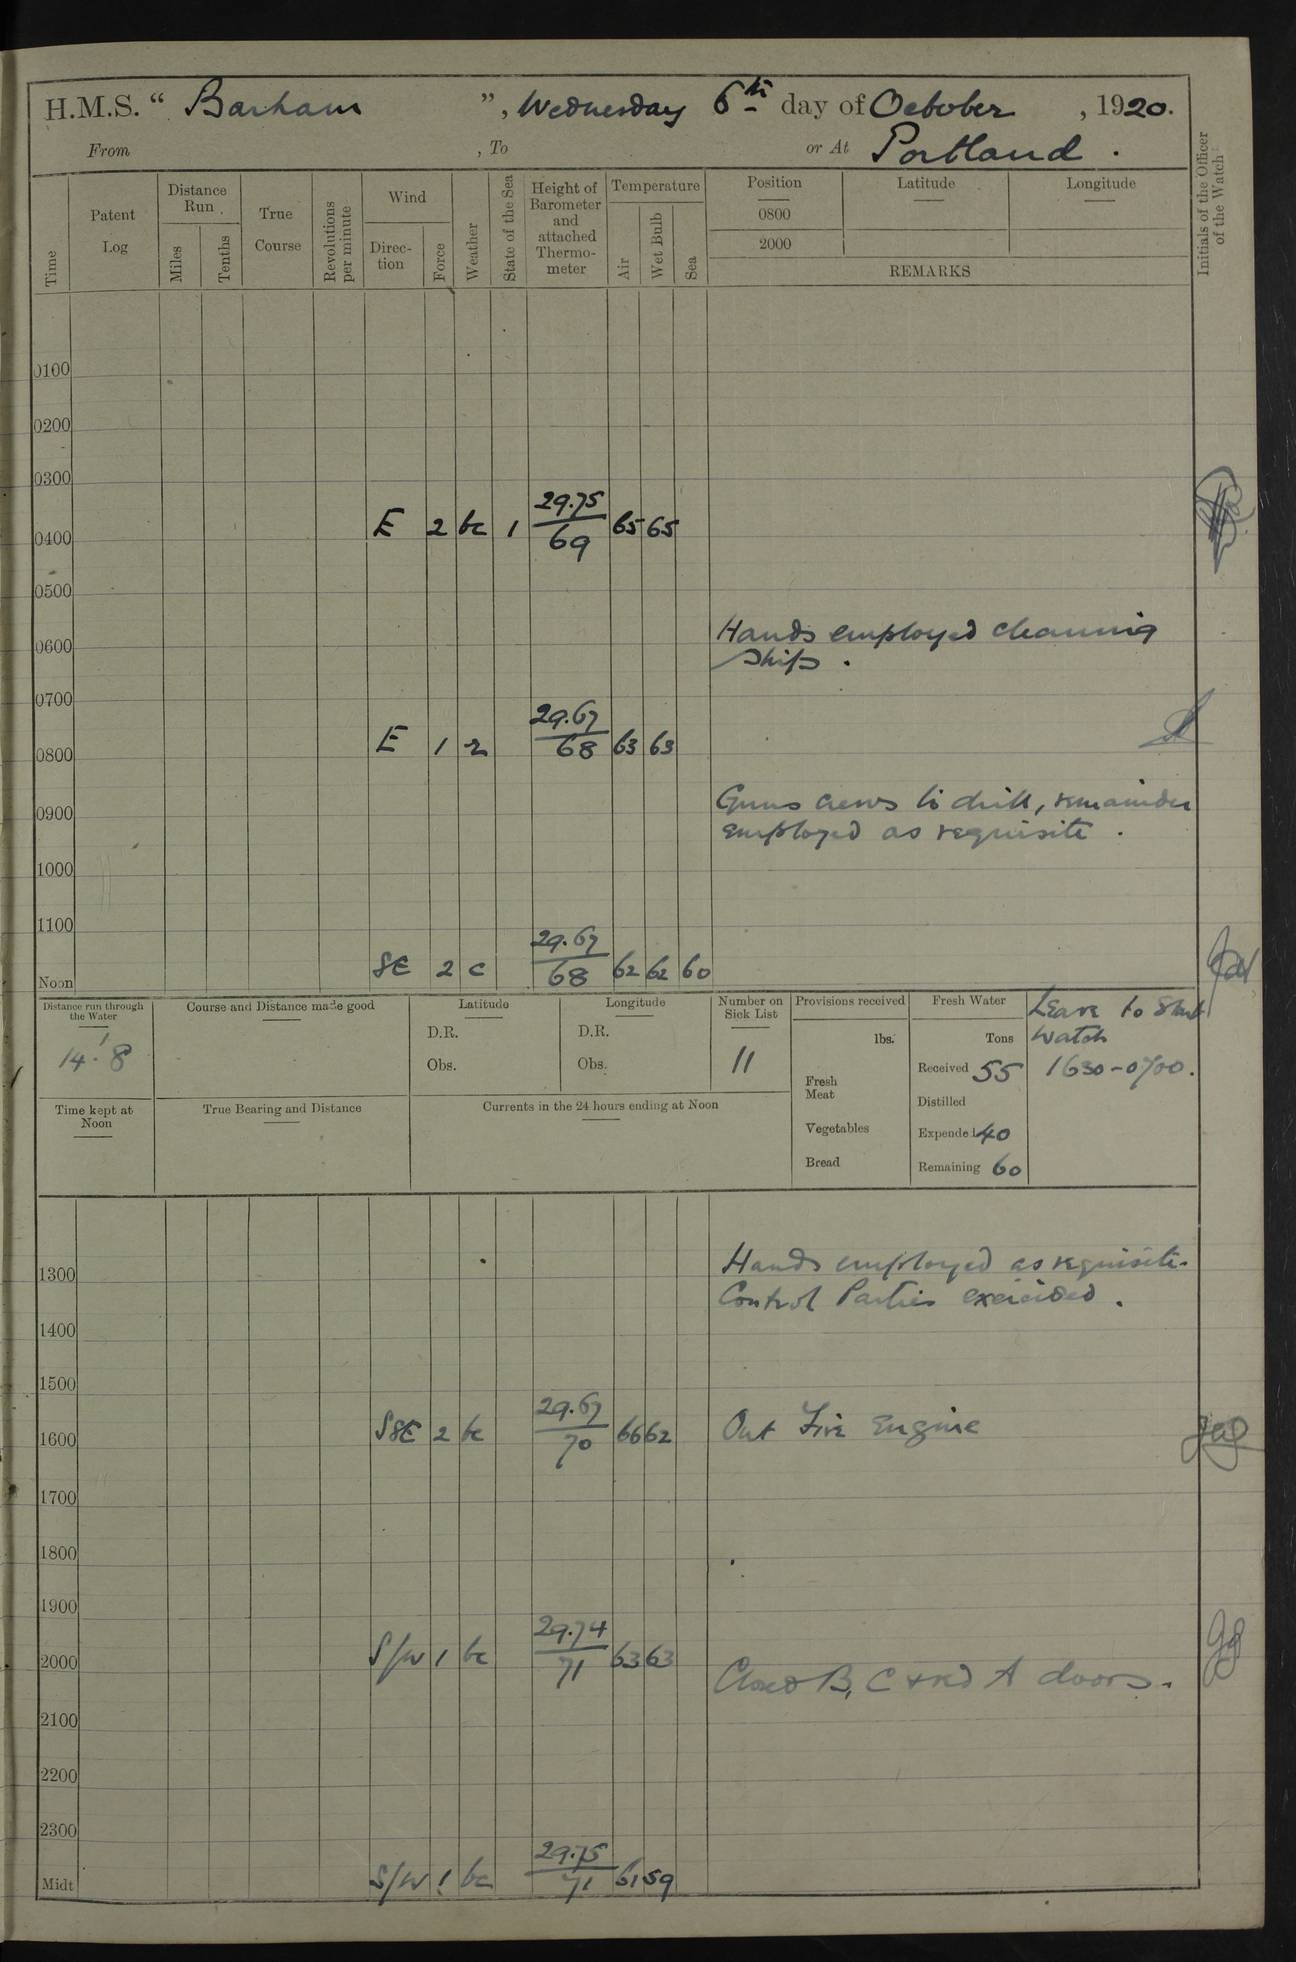 H.M.S. “ Barham ”, Wednesday 6th day of October , 1920.
From , To or At Portland .
Time
Patent Log
Distance Run
Miles
Tenths
True Course
Revolutions per minute
Wind
Direc-tion
Force
Weather
State of the Sea
Height of Barometer and attached Thermo-meter
Temperature
Air
Wet Bulb
Sea
Position Latitude Longitude
0800
2000
REMARKS
Initials of the Officer of the Watch
0100
0200
0300
29.75
0400 E 2 bc 1 69 65 65
0500
0600 Hands employed cleaning
ship .
0700
29.67
0800 E 1 r 68 63 63
0900 Guns crews to drill, remainder
employed as requisite .
1000
1100
29.67
Noon SE 2 c 68 62 62 60
Distance run through the Water
14.8
Course and Distance made good
Latitude
D.R.
Obs.
Longitude
D.R.
Obs.
Number on Sick List
11
Provisions received
lbs.
Fresh Meat
Vegetables
Bread
Fresh Water
Tons
Received 55
Distilled
Expended 40
Remaining 60
Leave to Stbd
Watch
1630-0700.
Time kept at Noon
True Bearing and Distance
Currents in the 24 hours ending at Noon
1300 Hands employed as requisite.
Control Parties exercised .
1400
1500
29.67
1600 SSE 2 bc 70 66 62 Out Fire Engine
1700
1800
1900
29.74
2000 S/W 1 bc 71 63 63
Closed B, C & red A doors.
2100
2200
2300
29.75
Midt S/W 1 bc 71 61 59